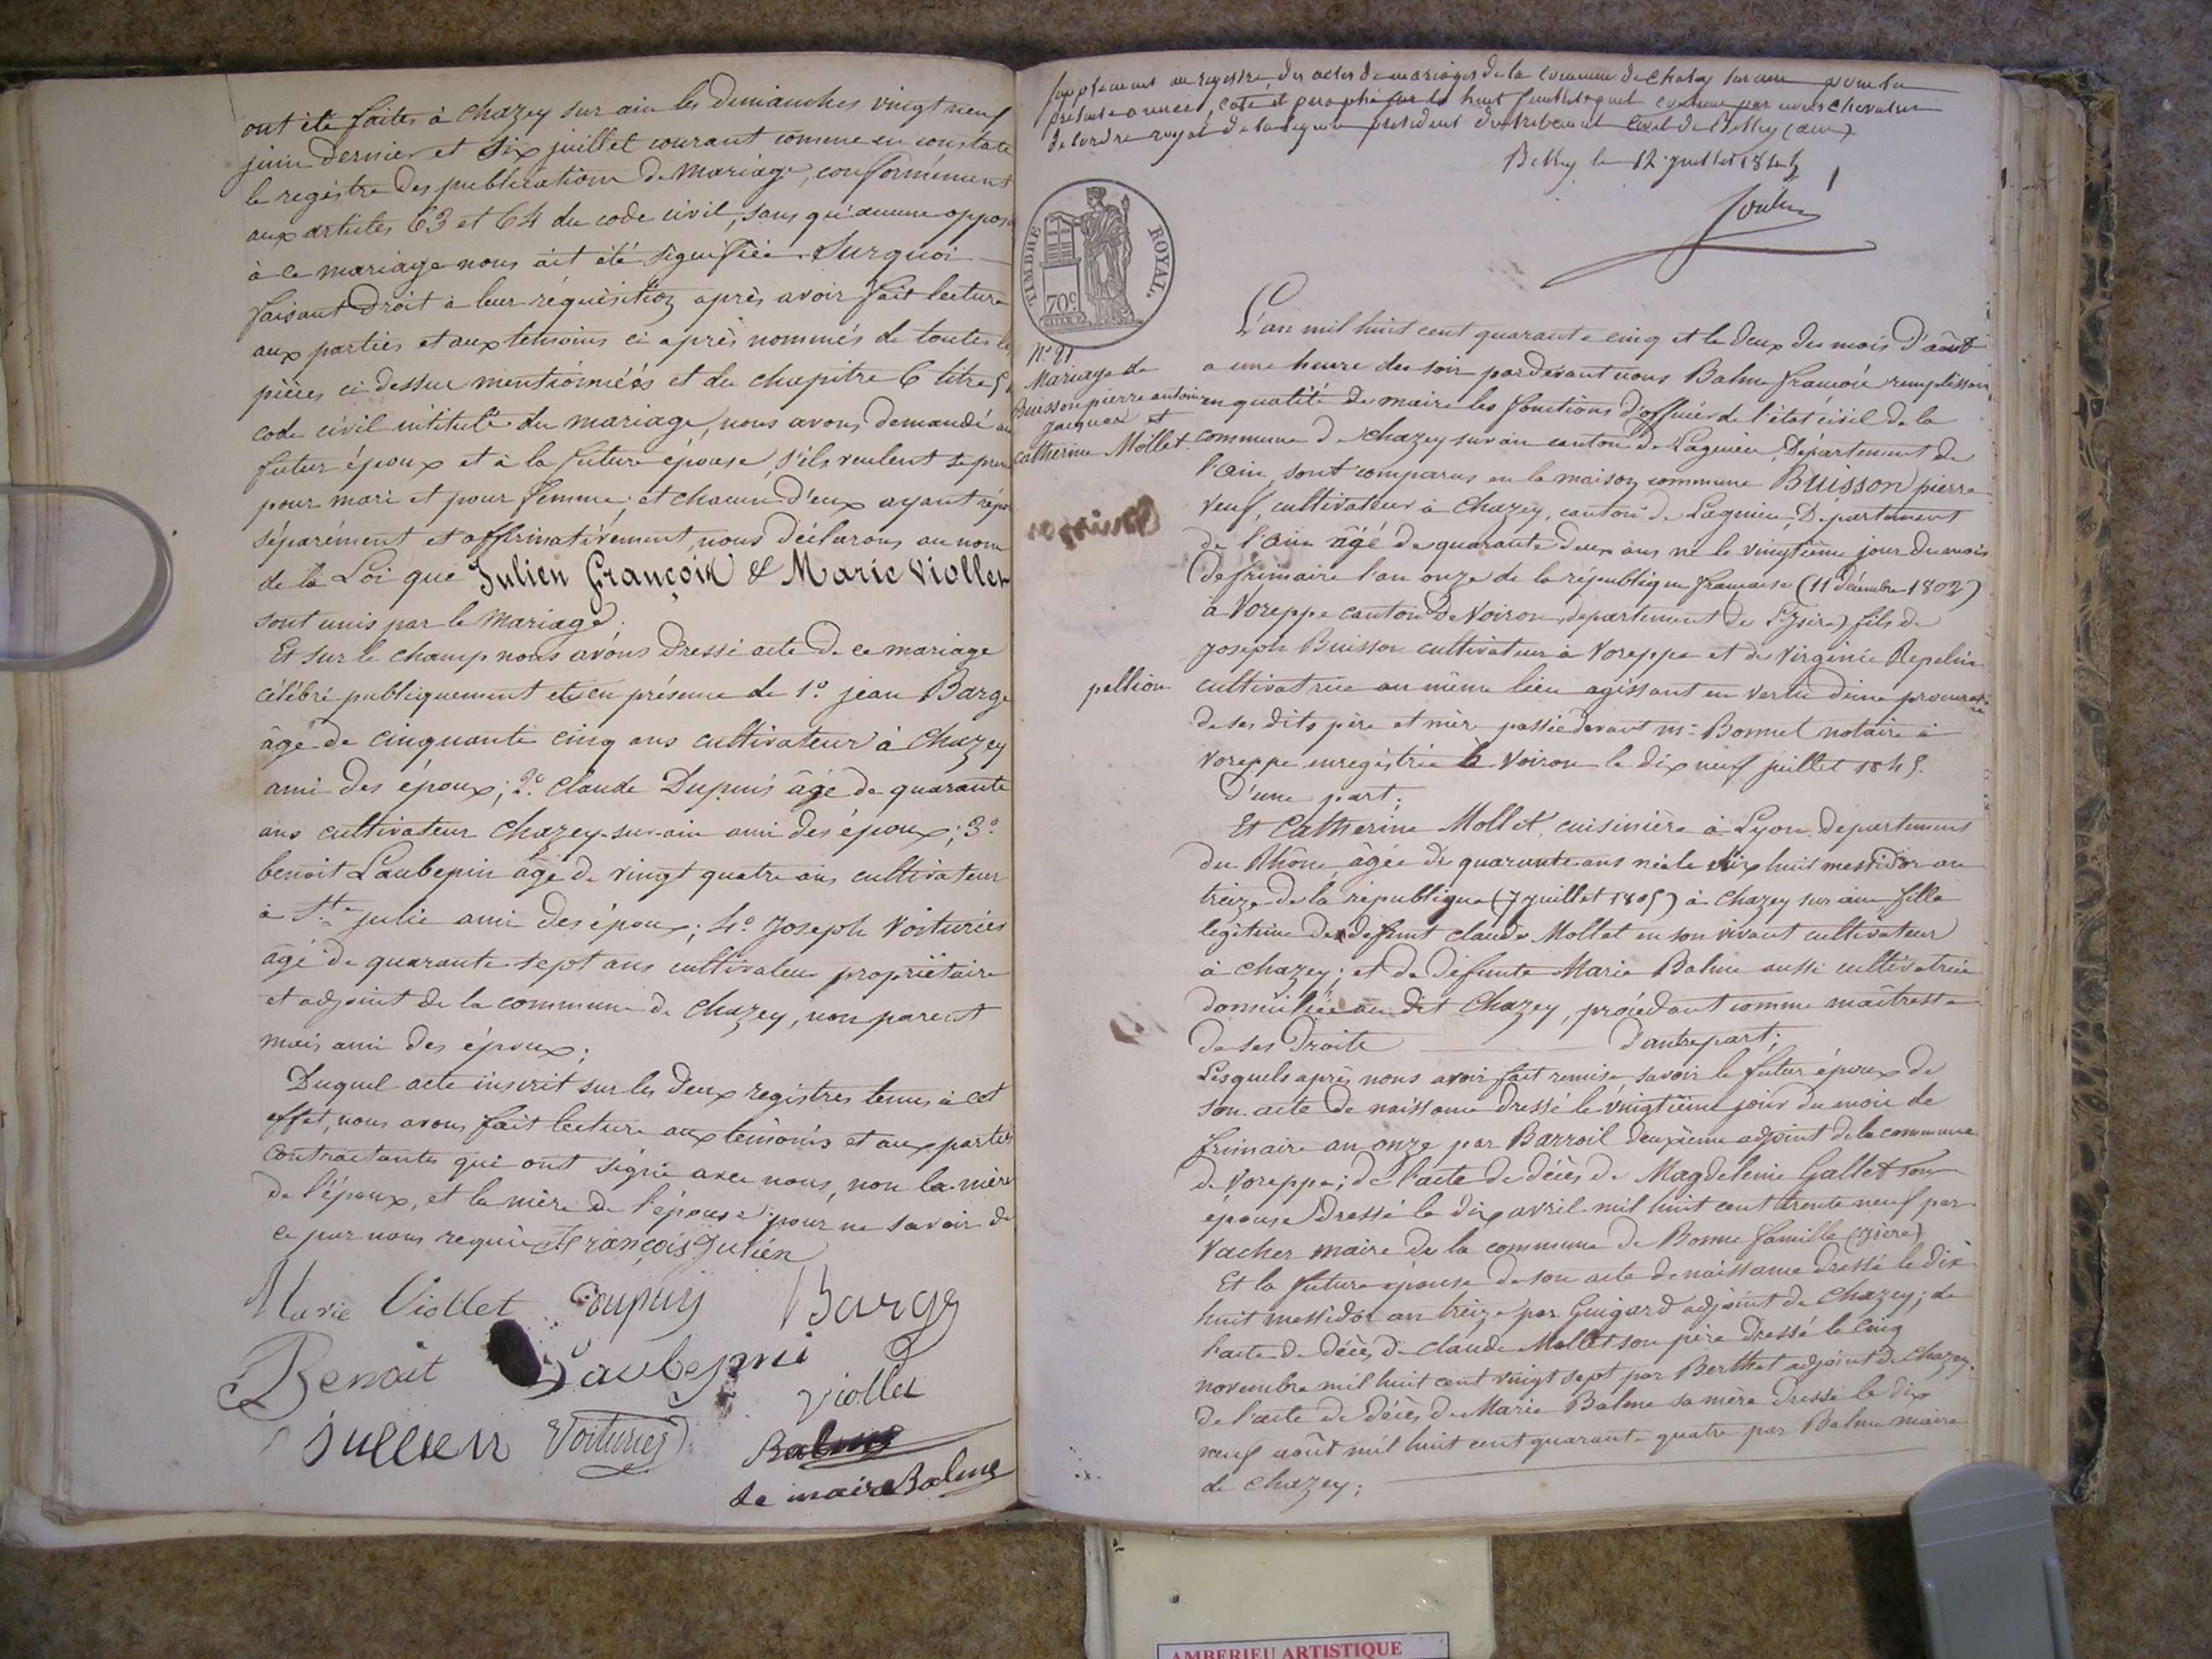 ont été faites à Chazey sur ain les dimanches vingt neuf
juin dernier et six juillet courant comme en constate
le registre des publications de mariage, conformément
aux articles 63 et 64 du code civil, sans qu'aucune oppos
à ce mariage nous ait été signifiée. Surquoi
faisant droit à leur réquisition après avoir fait lecture
aux parties et aux témoins ci après nommés de toutes les
pièces ci dessus mentionnéés et du chapitre 6 titre 5
code civil intitulé du mariage, nous avons demandé au
futur époux et à la future épouse s'ils veulent se pren
pour mari et pour femme; et chacun d'eux ayant répon
séparément et affirmativement, nous déclarons au nom
de la Loi que Julien François & Marie Viollet
sont unis par le Mariage;
Et sur le champ nous avons dressé acte de ce mariage
célébré publiquement et en présence de 1° jean Barge
âgé de cinquante cinq ans cultivateur à Chazey
ami des époux; 2° Claude Dupuis âgé de quarante
ans cultivateur Chazey-sur-ain ami des époux; 3°
benoit Laubepin âgé de vingt quatre ans cultivateur
à Ste Julie ami des époux; 4° Joseph Voiturier
âgé de quarante sept ans cultivateur propriétaire
et adjoint de la commune de Chazey, non parent
mais ami des époux;
Duquel acte inscrit sur les deux registres tenus à cet
effet, nous avons fait lecture aux témoins et aux parties
contractantes qui ont signé avec nous, non la mère
de l'époux, et la mère de l'épouse pour ne savoir de
ce par nous requis François Julien
Marie Viollet Dupuis Barge
Benoit Laubepin
Viollet
Jullien Voiturier
Balme
le maire Balme
Supplément au registre des actes de mariages de la commune de Chazey sur ain pour la
présente année, coté et paraphé sur le huit par nous chevalier
de l'ordre royal de la légion président du tribunal civil de Belley (ain)
Belley le 12 juillet 1845
TIMBRE ROYAL.
70c
N° 21
Mariage de
Buisson pierre antoine
jacques et
Catherine Mollet.
L'an mil huit cent quarante cinq et le deux du mois d'août
a une heure du soir pardevant nous Balme françois remplissan
en qualité de maire les fonctions d'officier de l'état civil de la
commune de chazey sur ain canton de Lagnieu, Département de
l'ain, sont comparus en la maison commune Buisson pierre
veuf, cultivateur à Chazey, canton de Lagnieu, Département
de l'ain âgé de quarante deux ans né le vingtième jour du mois
de frimaire l'an onze de la république française (11 décembre 1802)
à Voreppe canton de Voiron, département de l'Isère) fils de
joseph Buisson cultivateur à Voreppe et de Virginie Repelin
pellion
cultivatrice au même lieu agissant en vertu d'une procurat
de ses dits père et mère passée devant me Bonnet notaire à
voreppe enregistrée à Voiron le dix neuf juillet 1845.
D'une part;
Et Catherine Mollet, cuisinière à Lyon département
du Rhône, âgée de quarante ans née le dix huit messidor an
treize de la république (7 juillet 1805) à Chazey sur ain fille
légitime de defunt claude Mollet en son vivant cultivateur
à chazey; et de défunte Marie Balme aussi cultivatrice
domiciliée au dit Chazey, procédant comme maîtresse
de ses droits d'autrepart;
Lesquels après nous avoir fait remise, savoir le futur époux de
son acte de naissance dressé le vingtième jour du mois de
frimaire an onze par Barroil deuxième adjoint de la commune
de Voreppe; de l'acte de décès de Magdeleine Gallet son
épouse dressé le dix avril mil huit cent trente neuf par
Vacher maire de la commune de Bonne famille (isère)
Et la future épouse de son acte de naissance dressé le dix
huit messidor an treize par Guigard adjoint de Chazey; de
l'acte de décès de claude Mollet son père dressé le cinq
novembre mil huit cent vingt sept par Berthet adjoint de chazey.
de l'acte de décès de Marie Balme sa mère dressé le dix
neuf août mil huit cent quarante quatre par Balme maire
de Chazey;
AMBERIEU ARTISTIQUE